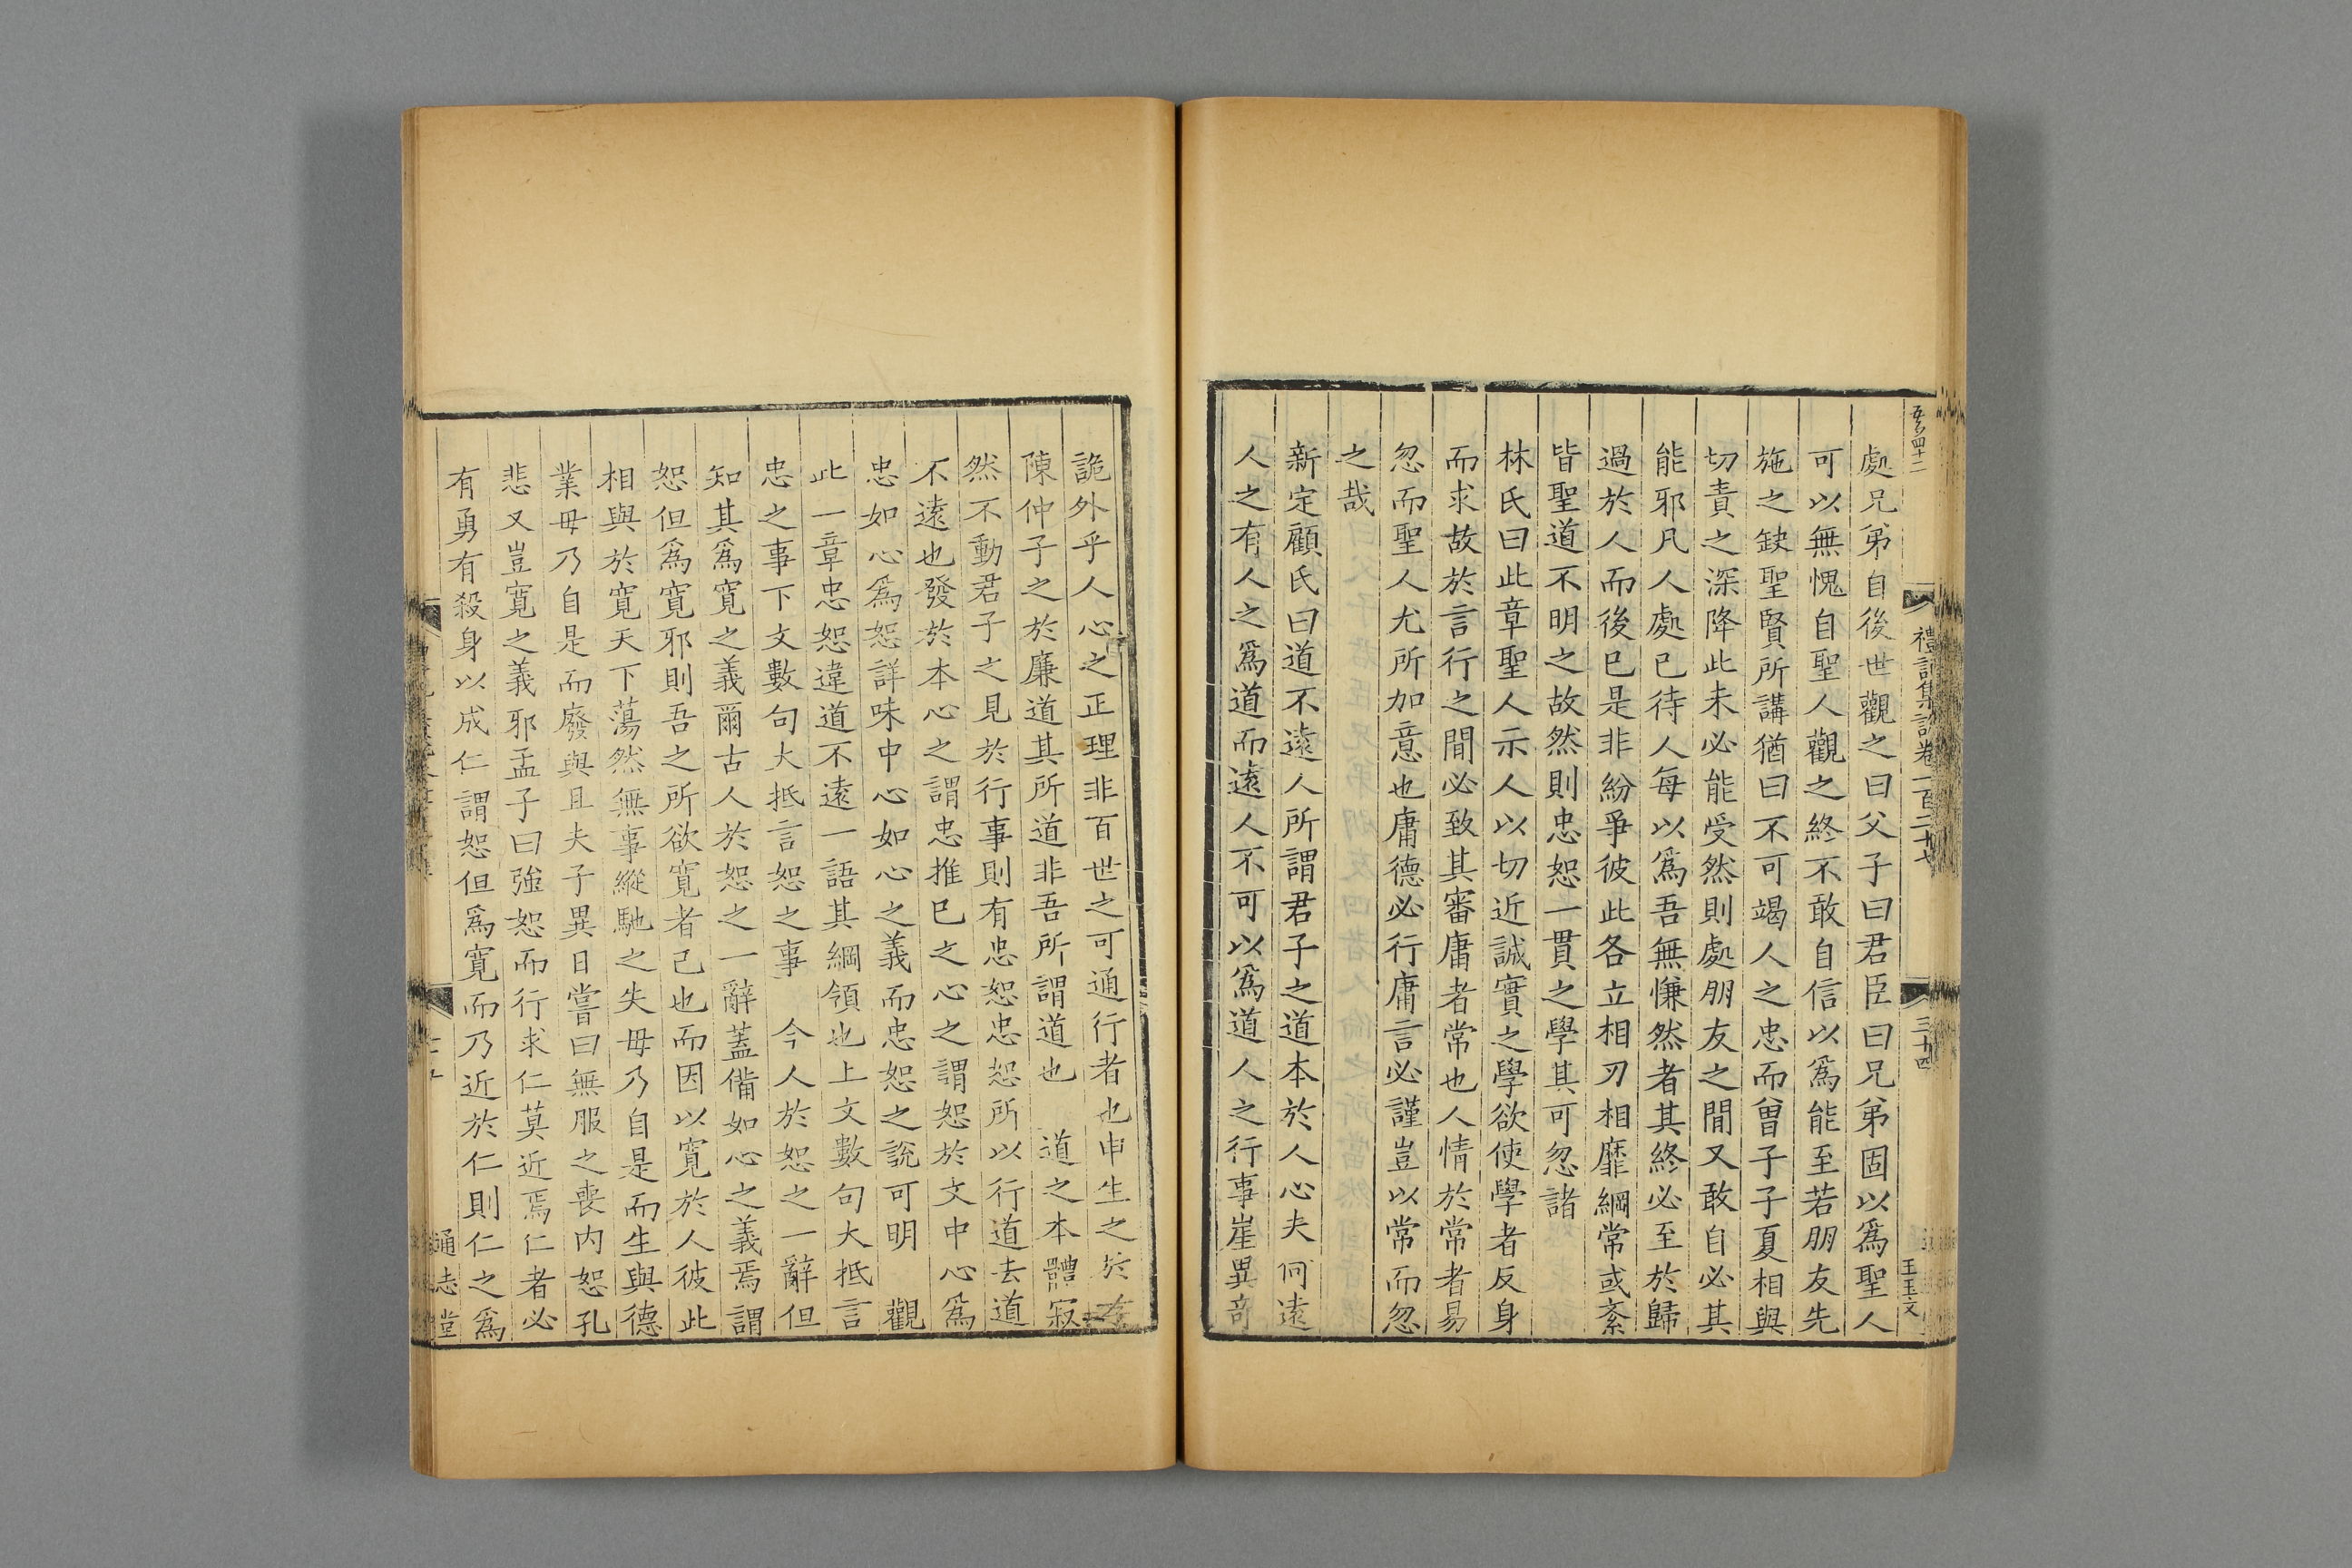 禮記集說卷一百二十七
三十四
王玉文
處兄弟自後世觀之曰父子曰君臣曰兄弟固以爲聖人
可以無愧自聖人觀之終不敢自信以爲能至若朋友先
施之缺聖賢所講猶曰不可竭人之忠而曾子子夏相與
切責之深降此未必能受然則處朋友之間又敢自必其
能邪凡人處已待人每以爲吾無慊然者其終必至於歸
過於人而後已是非紛爭彼此各立相刃相靡綱常或紊
皆聖道不明之故然則忠恕一貫之學其可忽諸
林氏曰此章聖人示人以切近誠實之學欲使學者反身
而求故於言行之間必致其審庸者常也人情於常者易
忽而聖人尤所加意也庸德必行庸言必謹豈以常而忽
之哉
新定顧氏曰道不遠人所謂君子之道本於人心夫何遠
人之有人之爲道而遠人不可以爲道人之行事崖異奇
詭外乎人心之正理非百世之可通行者也申生之於孝
陳仲子之於廉道其所道非吾所謂道也 道之本體寂
然不動君子之見於行事則有忠恕忠恕所以行道去道
不遠也發於本心之謂忠推已之心之謂恕於文中心爲
忠如心爲恕詳味中心如心之義而忠恕之說可明 觀
此一章忠恕違道不遠一語其綱領也上文數句大抵言
忠之事下文數句大抵言恕之事 今人於恕之一辭但
知其爲寬之義爾古人於恕之一辭蓋備如心之義焉謂
恕但爲寬邪則吾之所欲寬者己也而因以寬於人彼此
相與於寬天下蕩然無事縱馳之失毋乃自是而生與德
業毋乃自是而廢與且夫子異日嘗曰無服之喪內恕孔
悲又豈寬之義邪孟子曰強恕而行求仁莫近焉仁者必
有勇有殺身以成仁謂恕但爲寬而乃近於仁則仁之爲
通志堂